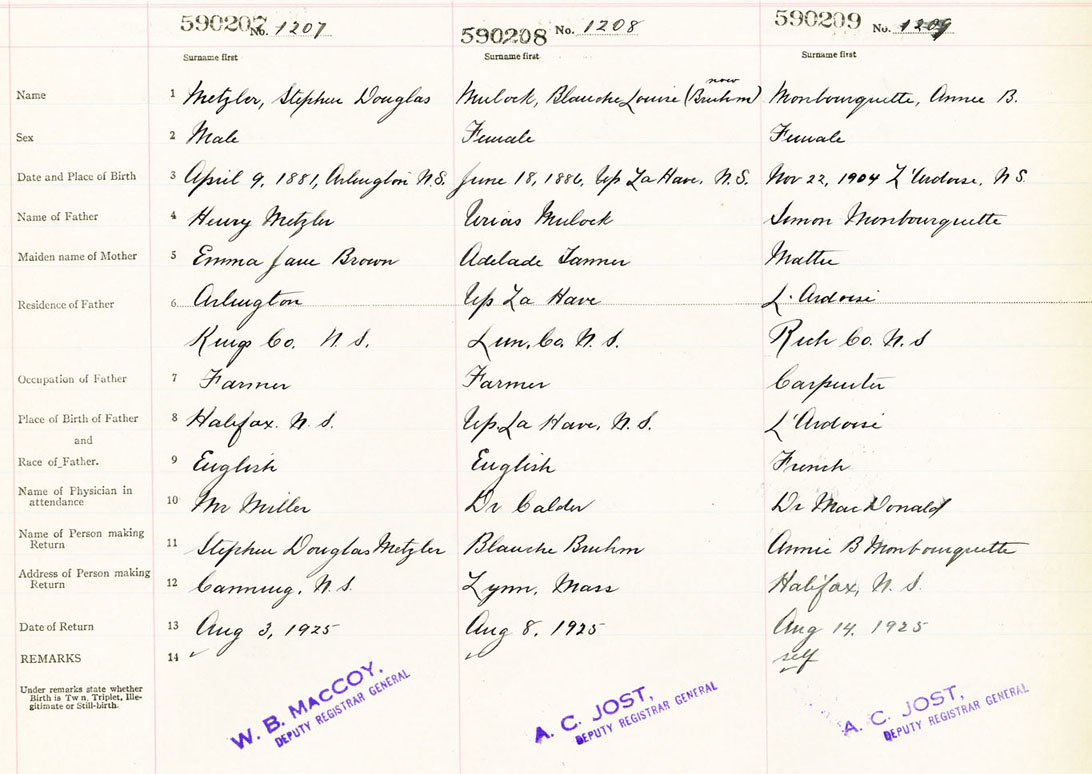 590207 No. 1207 590208 No. 1208 590209 No. 1209
Surname first Surname first Surname first
Name 1 Metzler, Stephen Douglas Mulock, Blanche Louise (now Bruhm) Monbourquette, Annie B.
Sex 2 Male Female Female
Date and Place of Birth 3 April 9, 1881, Arlington N.S. June 18, 1886, Up La Have, N.S. Nov 22, 1904 L'Ardoise, N S.
Name of Father 4 Henry Metzler Urias Mulock Simon Monbourquette
Maiden name of Mother 5 Emma Jane Brown Adelade Tanner Mattie
Residence of Father 6 Arlington Up La Have L'Ardoise
Kings Co. N. S. Lun. Co. N. S. Rich Co. N. S
Occupation of Father 7 Farmer Farmer Carpenter
Place of Birth of Father 8 Halifax. N. S. Up La Have, N. S. L'Ardoise
and
Race of Father. 9 English English French
Name of Physician in
attendance 10 Mr Miller Dr Calder Dr MacDonald
Name of Person making
Return 11 Stephen Douglas Metzler Blanche Bruhm Annie B Monbourquette
Address of Person making
Return 12 Canning, N.S. Lynn, Mass Halifax, N. S.
Date of Return 13 Aug 3, 1925 Aug 8, 1925 Aug 14, 1925
REMARKS 14 self
Under remarks state whether
Birth is Tw n, Triplet, Ille-
gitimate or Still-birth.
W. B. MACCOY,
DEPUTY REGISTRAR GENERAL
A. C. JOST,
DEPUTY REGISTRAR GENERAL
A. C. JOST,
DEPUTY REGISTRAR GENERAL